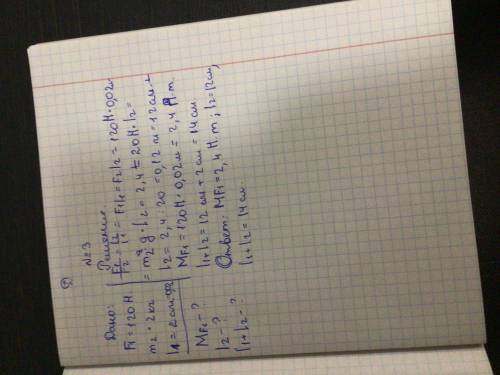 №3
Дано:
F₁ = 120 Н
m₂ = 2 кг
l₁ = 2 см = 0,02
MF₁ - ?
l₂ - ?
l₁ + l₂ - ?
Решение
F₁/F₂ = l₂/l₁ = F₁l₁ = F₂l₂ = 120Н · 0,02м
= m₂g · l₂ = 2,4 = 20Н · l₂ =
l₂ = 2,4 : 20 = 0,12 м = 12 см
MF₁ = 120Н · 0,02м = 2,4 Н·m.
l₁ + l₂ = 12 см + 2 см = 14 см.
Ответ: MF₁ = 2,4 Н.m ; l₂ = 12 см,
l₁ + l₂ = 14 см